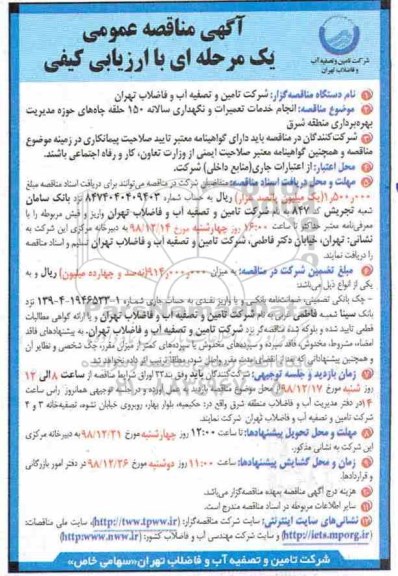 آگهی مناقصه عمومی
یک مرحله ای با ارزیابی کیفی
شرکت تامین و تصفیه آب
و فاضلاب تهران
۱ نام دستگاه مناقصه‌گزار: شرکت تامین و تصفیه آب و فاضلاب تهران
۲ موضوع مناقصه: انجام خدمات تعمیرات و نگهداری سالانه ۱۵۰ حلقه چاه‌های حوزه مدیریت
بهره‌برداری منطقه شرق
۳ شرکت‌کنندگان در مناقصه باید دارای گواهینامه معتبر تایید صلاحیت پیمانکاری در زمینه موضوع
مناقصه و همچنین گواهینامه معتبر صلاحیت ایمنی از وزارت تعاون، کار و رفاه اجتماعی باشند.
۴ محل اعتبار: از اعتبارات جاری(منابع داخلی) شرکت.
۵ مهلت و محل دریافت اسناد مناقصه: متقاضیان شرکت در مناقصه می‌توانند برای دریافت اسناد مناقصه مبلغ
ریال به حساب شماره نزد بانک سامان
شعبه تجریش بنام شرکت تامین و تصفیه آب و فاضلاب تهران واریز و فیش مربوطه را با
معرفی‌نامه معتبر حداکثر تا ساعت ۱۶:۰۰ روز چهارشنبه مورخ ۹۸/۱۲/۱۴ به دبیرخانه مرکزی این شرکت به
نشانی: تهران، خیابان دکتر فاطمی، شرکت تامین و تصفیه آب و فاضلاب تهران تسلیم و اسناد مناقصه
را دریافت نمایند.
۶ مبلغ تضمین شرکت در مناقصه: به میزان (نهصد و چهارده میلیون) ریال و به
یکی از انواع ذیل می‌باشد:
- چک بانکی تضمینی، ضمانت‌نامه بانکی و یا واریز نقدی به حساب جاری شماره نزد
بانک سینا شعبه فاطمی تهران به نام شرکت تامین و تصفیه آب و فاضلاب تهران و یا ارائه گواهی مطالبات
قطعی تایید شده و بلوکه شده مناقصه‌گر نزد شرکت تامین و تصفیه آب و فاضلاب تهران. به پیشنهادهای فاقد
امضاء، مشروط، مخدوش، فاقد سپرده و سپرده‌های مخدوش یا سپرده‌های کمتر از میزان مقرر، چک شخصی و نظایر آن
و همچنین پیشنهاداتی که بعد از انقضای مدت مقرر واصل شود، مطلقاً ترتیب اثر داده نخواهد شد.
۷ زمان بازدید و جلسه توجیهی: شرکت‌کنندگان باید طی بند ۲۳ اوراق شرایط مناقصه از ساعت ۸ الی ۱۲
روز شنبه مورخ ۹۸/۱۲/۱۷ از محل موضوع مناقصه بازدید به عمل آورده و در جلسه توجیهی همانروز راس ساعت
۱۴ در دفتر مدیریت آب و فاضلاب منطقه شرق واقع در: حکیمیه، بلوار بهار، روبروی خیابان نشوه، تصفیه‌خانه ۳ و ۴
شرکت تامین و تصفیه آب و فاضلاب تهران شرکت نمایند.
۸ مهلت و محل تحویل پیشنهادها: تا ساعت ۱۲:۰۰ روز چهارشنبه مورخ ۹۸/۱۲/۲۱ به دبیرخانه مرکزی
این شرکت به نشانی مذکور.
۹ زمان و محل گشایش پیشنهادها: ساعت ۱۱:۰۰ روز دوشنبه مورخ ۹۸/۱۲/۲۶ در دفتر امور بازرگانی
و قراردادها.
۱۰ هزینه درج آگهی مناقصه بعهده مناقصه‌گزار می‌باشد.
۱۱ سایر اطلاعات مربوطه در اسناد مناقصه مندرج است.
۱۲ نشانی‌های سایت اینترنتی: سایت شرکت مناقصه‌گزار: (http://tww.tpww.ir)، سایت ملی مناقصات:
(http://iets.mporg.ir) و سایت شرکت مهندسی آب و فاضلاب کشور: (http:www.nww.ir)
شرکت تامین و تصفیه آب و فاضلاب تهران «سهامی خاص»